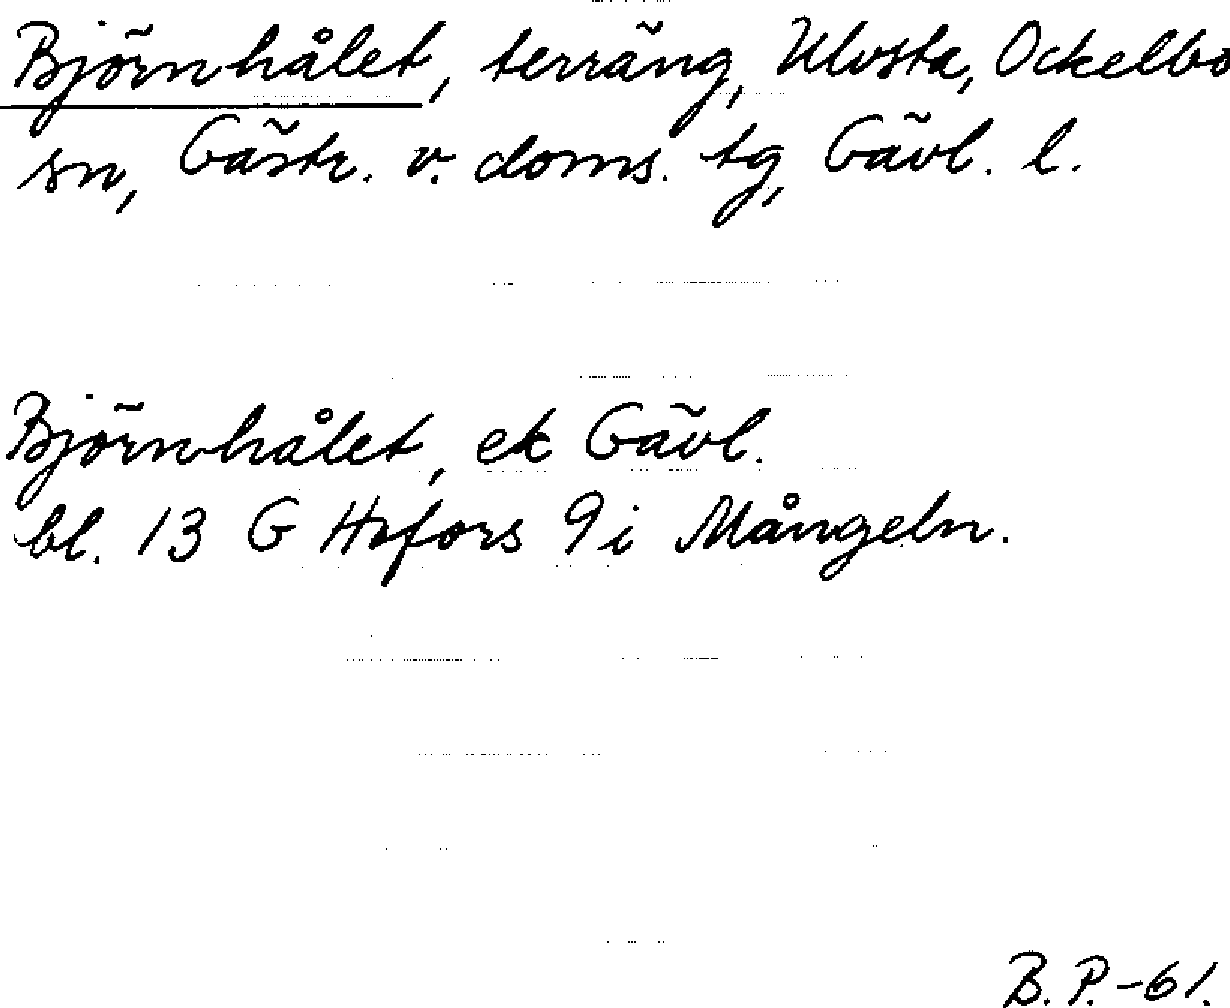 Björnhålet, terräng, Ulvsta, Ockelbo
sn, Gästr. v. doms. tg, Gävl. l.
Björnhålet, ek Gävl.
bl. 13 G Hofors 9 i Mångeln.
B. P. -61.